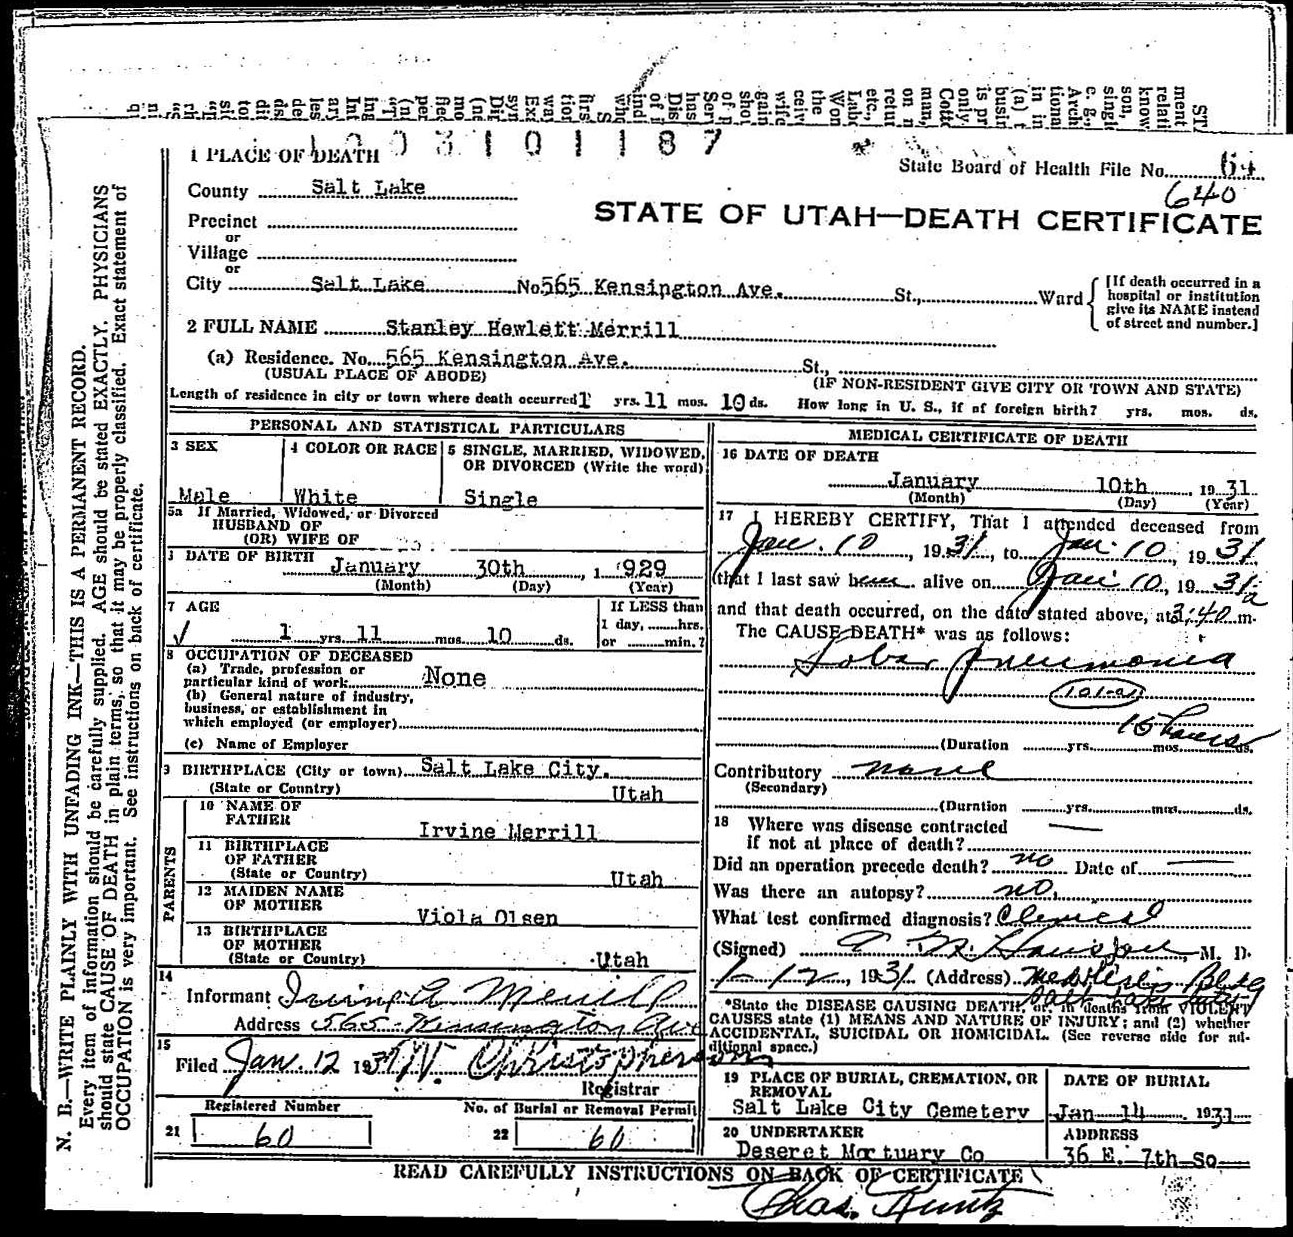 1003101187
1 PLACE OF DEATH
State Board of Health File No. 64
640
County Salt Lake
STATE OF UTAH—DEATH CERTIFICATE
Precinct
or
Village
or
City Salt Lake No. 565 Kensington Ave. St., Ward
[If death occurred in a
hospital or institution
give its NAME instead
of street and number.]
2 FULL NAME Stanley Hewlett Merrill
(a) Residence. No. 565 Kensington Ave. St.,
(USUAL PLACE OF ABODE) (IF NON-RESIDENT GIVE CITY OR TOWN AND STATE)
Length of residence in city or town where death occurred 1 yrs. 11 mos. 10 ds. How long in U. S., if of foreign birth? yrs. mos. ds.
PERSONAL AND STATISTICAL PARTICULARS
3 SEX
Male
4 COLOR OR RACE
White
5 SINGLE, MARRIED, WIDOWED,
OR DIVORCED (Write the word)
Single
5a If Married, Widowed, or Divorced
HUSBAND OF
(OR) WIFE OF
DATE OF BIRTH
January 30th, 1929
(Month) (Day) (Year)
7 AGE
1 yrs. 11 mos. 10 ds.
If LESS than
1 day, hrs.
or min.?
8 OCCUPATION OF DECEASED
(a) Trade, profession or
particular kind of work None
(b) General nature of industry,
business, or establishment in
which employed (or employer)
(c) Name of Employer
9 BIRTHPLACE (City or town) Salt Lake City.
(State or Country) Utah
PARENTS
10 NAME OF
FATHER Irvine Merrill
11 BIRTHPLACE
OF FATHER
(State or Country) Utah
12 MAIDEN NAME
OF MOTHER Viola Olsen
13 BIRTHPLACE
OF MOTHER
(State or Country) Utah
14
Informant Irving A Merrill
Address 565 Kensington Ave
15
Filed Jan. 12 1931 W. Christopherson
Registrar
Registered Number
21 60
No. of Burial or Removal Permit
22 60
MEDICAL CERTIFICATE OF DEATH
16 DATE OF DEATH
January 10th, 1931
(Month) (Day) (Year)
17 I HEREBY CERTIFY, That I attended deceased from
Jan. 10, 1931, to Jan. 10, 1931
that I last saw him alive on Jan 10, 1931
and that death occurred, on the date stated above, at 3:40 a m.
The CAUSE DEATH* was as follows:
Lobar pneumonia
101-a
15 hours
(Duration yrs. mos. ds.
Contributory none
(Secondary)
(Duration yrs. mos. ds.
18 Where was disease contracted
if not at place of death? —
Did an operation precede death? no Date of —
Was there an autopsy? no.
What test confirmed diagnosis? Clinical
(Signed) M. D.
1-12, 1931 (Address) Bldg
Salt Lake City
*State the DISEASE CAUSING DEATH, or, in deaths from VIOLENT
CAUSES state (1) MEANS AND NATURE OF INJURY; and (2) whether
ACCIDENTAL, SUICIDAL OR HOMICIDAL. (See reverse side for ad-
ditional space.)
19 PLACE OF BURIAL, CREMATION, OR
REMOVAL
Salt Lake City Cemetery
DATE OF BURIAL
Jan 14 1931
20 UNDERTAKER
Deseret Mortuary Co
ADDRESS
36 E. 7th So
READ CAREFULLY INSTRUCTIONS ON BACK OF CERTIFICATE
Chas. Kuntz
N. B.—WRITE PLAINLY WITH UNFADING INK—THIS IS A PERMANENT RECORD.
Every item of information should be carefully supplied. AGE should be stated EXACTLY. PHYSICIANS
should state CAUSE OF DEATH in plain terms, so that it may be properly classified. Exact statement of
OCCUPATION is very important. See instructions on back of certificate.